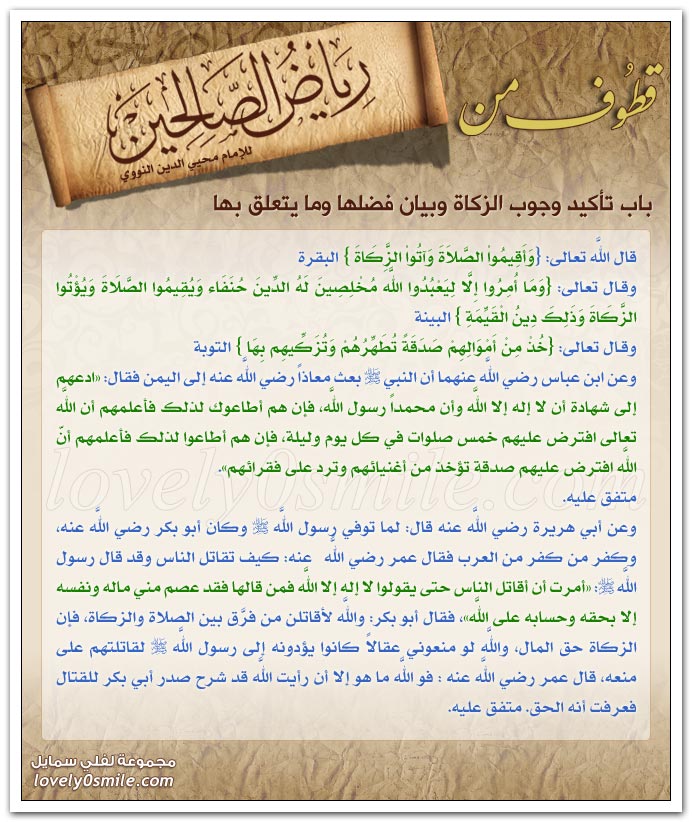 قطوف من
رياض الصالحين
للإمام محيي الدين النووي
باب تأكيد وجوب الزكاة وبيان فضلها وما يتعلق بها
قال اللَّه تعالى: {وَأَقِيمُواْ الصَّلاَةَ وَآتُواْ الزَّكَاةَ } البقرة
وقال تعالى: {وَمَا أُمِرُوا إِلَّا لِيَعْبُدُوا اللَّه مُخْلِصِينَ لَهُ الدِّينَ حُنَفَاء وَيُقِيمُوا الصَّلَاةَ وَيُؤْتُوا
الزَّكَاةَ وَذَلِكَ دِينُ الْقَيِّمَةِ } البينة
وقال تعالى: {خُذْ مِنْ أَمْوَالِهِمْ صَدَقَةً تُطَهِّرُهُمْ وَتُزَكِّيهِم بِهَا } التوبة
وعن ابن عباس رضي اللَّه عنهما أن النبي ﷺ بعث معاذاً رضي اللَّه عنه إلى اليمن فقال: «ادعهم
إلى شهادة أن لا إله إلا اللَّه وأن محمداً رسول اللَّه، فإن هم أطاعوك لذلك فأعلمهم أن اللَّه
تعالى افترض عليهم خمس صلوات في كل يوم وليلة، فإن هم أطاعوا لذلك فأعلمهم أنّ
اللَّه افترض عليهم صدقة تؤخذ من أغنيائهم وترد على فقرائهم».
متفق عليه.
وعن أبي هريرة رضي اللَّه عنه قال: لما توفي رسول اللَّه ﷺ وكان أبو بكر رضي اللَّه عنه،
وكفر من كفر من العرب فقال عمر رضي اللَّه عنه: كيف تقاتل الناس وقد قال رسول
اللَّه ﷺ: «أمرت أن أقاتل الناس حتى يقولوا لا إله إلا اللَّه فمن قالها فقد عصم مني ماله ونفسه
إلا بحقه وحسابه على اللَّه»، فقال أبو بكر: واللَّه لأقاتلن من فرَّق بين الصلاة والزكاة، فإن
الزكاة حق المال، واللَّه لو منعوني عقالاً كانوا يؤدونه إلى رسول اللَّه ﷺ لقاتلتهم على
منعه، قال عمر رضي اللَّه عنه : فو اللَّه ما هو إلا أن رأيت اللَّه قد شرح صدر أبي بكر للقتال
فعرفت أنه الحق. متفق عليه.
lovely0smile.com
مجموعة لفلي سمايل
lovely0smile.com